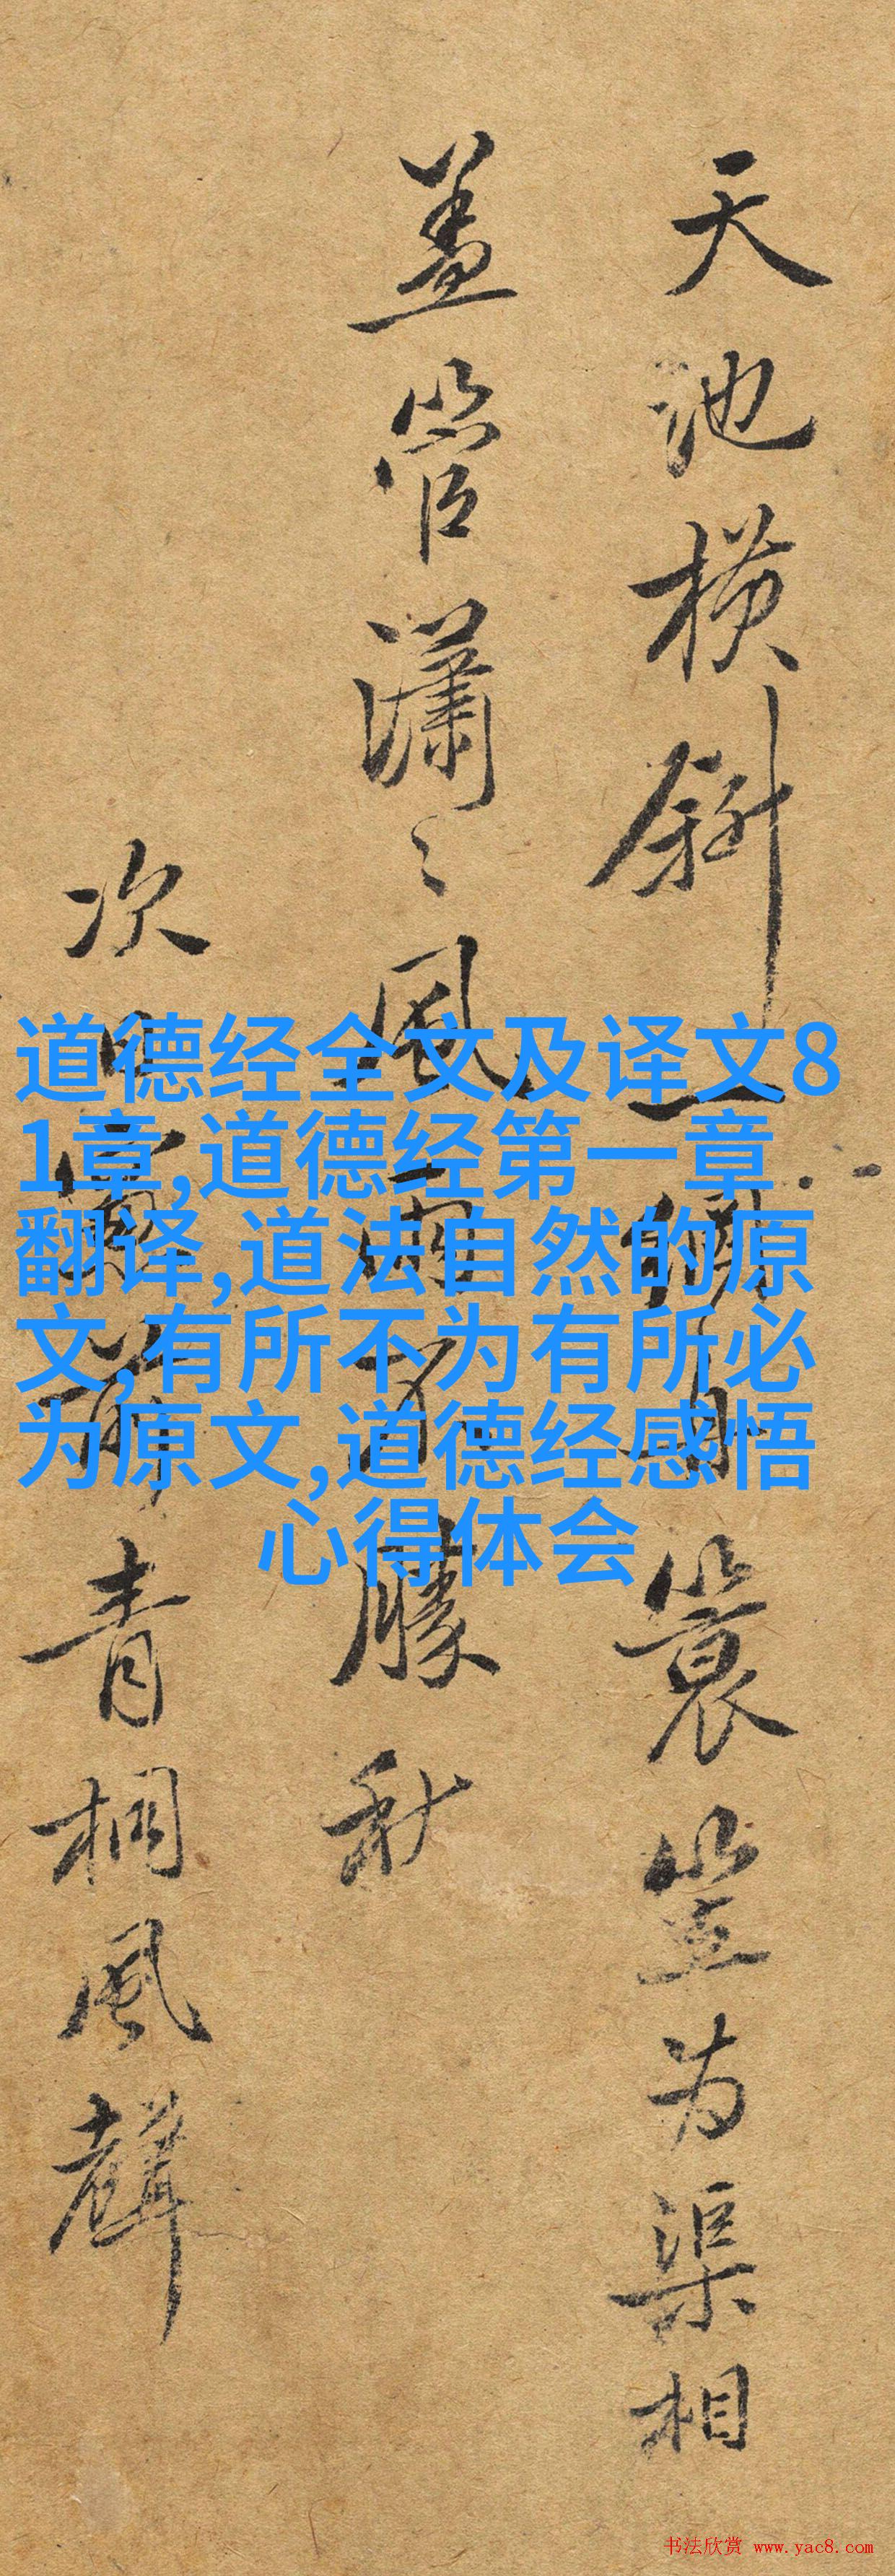 天池横斜一簑笠为渠相
盖管瀟〻風雨不勝秋
次日前青桐風聲
道德经全文及译文8
1章,道德经第一章
翻译,道法自然的原
文,有所不为有所必
为原文,道德经感悟
心得体会
书法欣赏 www.yac8.com